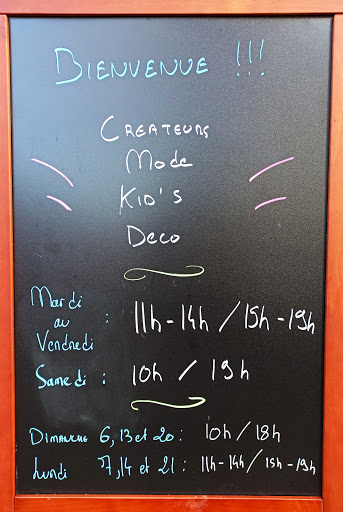 BIENVENUE !!!
CREATEURS
Mode
KID'S
Deco
Mardi
au : 11h - 14h / 15h - 19h
Vendredi
Samedi : 10h / 19h
DIMANCHE 6, 13 et 20 : 10h / 18h
Lundi 7, 14 et 21 : 11h - 14h / 15h - 19h